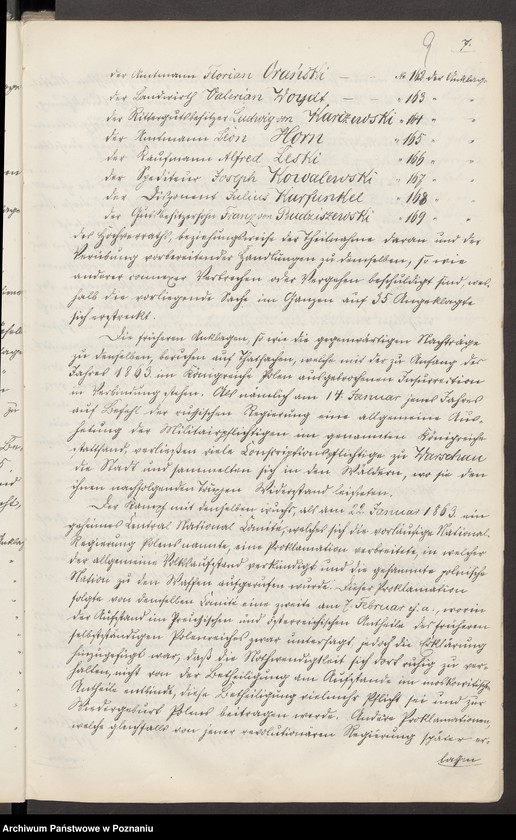 9 7.
der Amtmann Florian Orański — - № 162 der Anklage
der Landwirth Valerian Woydt — - " 163 " "
der Rittergutsbesitzer Ludwig von Karczewski " 164 " "
der Amtmann Leon Horn " 165 " "
der Kaufmann Alfred Leski " 166 " "
der Spediteur Joseph Kowalewski " 167 " "
der Disponent Julius Karfunkel " 168 " "
der Gutsbesitzersohn Franz von Budziszewski " 169 " "
des Hochverraths, beziehungsweise der Theilnahme daran und der
Verübung vorbereitender Handlungen zu demselben, so wie
anderer connexer Verbrechen oder Vergehen beschuldigt sind, wes-
halb die vorliegende Sache im Ganzen auf 35 Angeklagte
sich erstreckt.
Die früheren Anklagen, so wie die gegenwärtigen Nachträge
zu denselben, beruhen auf Thatsachen, welche mit der zu Anfang des
Jahres 1863 im Königreiche Polen ausgebrochenen Insurrection
in Verbindung stehen. Als nämlich am 14. Januar jenes Jahres
auf Befehl der russischen Regierung eine allgemeine Aus-
hebung der Militairpflichtigen im genannten Königreiche
stattfand, verließen viele Conscriptionspflichtige zu Warschau
die Stadt und sammelten sich in den Wäldern, wo sie den
ihnen nachfolgenden Truppen Widerstand leisteten.
Der Kampf mit denselben, als am 22. Januar 1863. ein
geheimes Central National Comité, welches sich die vorläufige National-
Regierung Polens nannte, eine Proklamation verbreitete, in welcher
der allgemeine Volksaufstand verkündigt und die gesammte polnische
Nation zu den Waffen aufgerufen wurde. Dieser Proklamation
folgte von demselben Comité eine zweite am 7. Februar ej. a., worin
der Aufstand im Preußischen und österreichischen Antheile des früheren
selbstständigen Polenreiches zwar untersagt, jedoch die Erklärung
hinzugefügt war, daß die Nothwendigkeit sich dort ruhig zu ver-
halten, nicht von der Betheiligung am Aufstande im moskovitischen
Antheile entbinde, diese Betheiligung vielmehr Pflicht sei und zur
Wiedergeburt Polens beitragen werde. Andere Proklamationen,
welche gleichfalls von jener revolutionären Regierung später er-
lassen
Archiwum Państwowe w Poznaniu